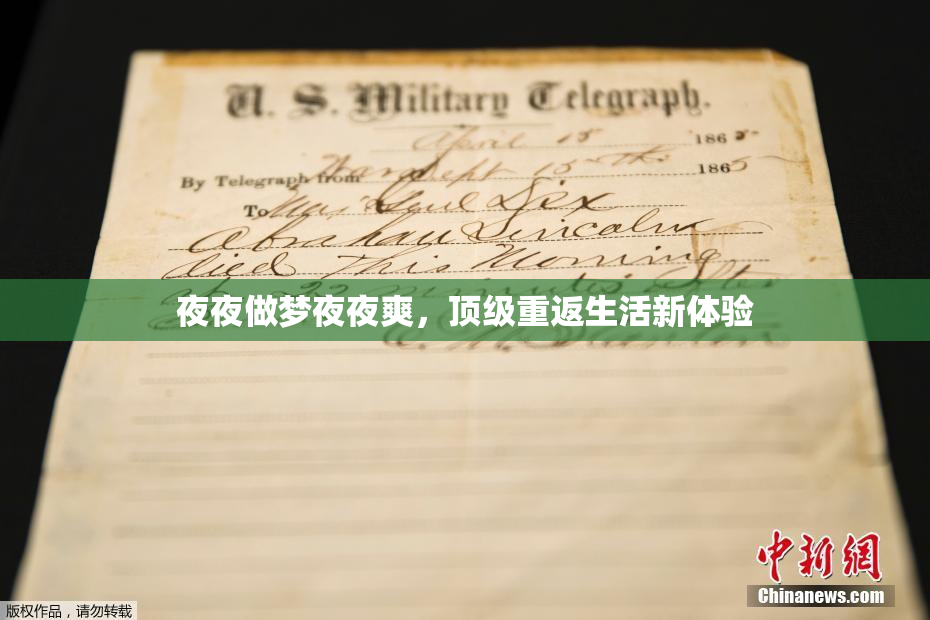 U. S. Military Telegraph.
April 15 1865
By Telegraph from War Dept 15th 1865
To Maj Genl Dix
Abraham Lincoln
died This Morning
at 22 minutes after
夜夜做梦夜夜爽，顶级重返生活新体验
E. M. Stanton
中新网
Chinanews.com
版权作品，请勿转载